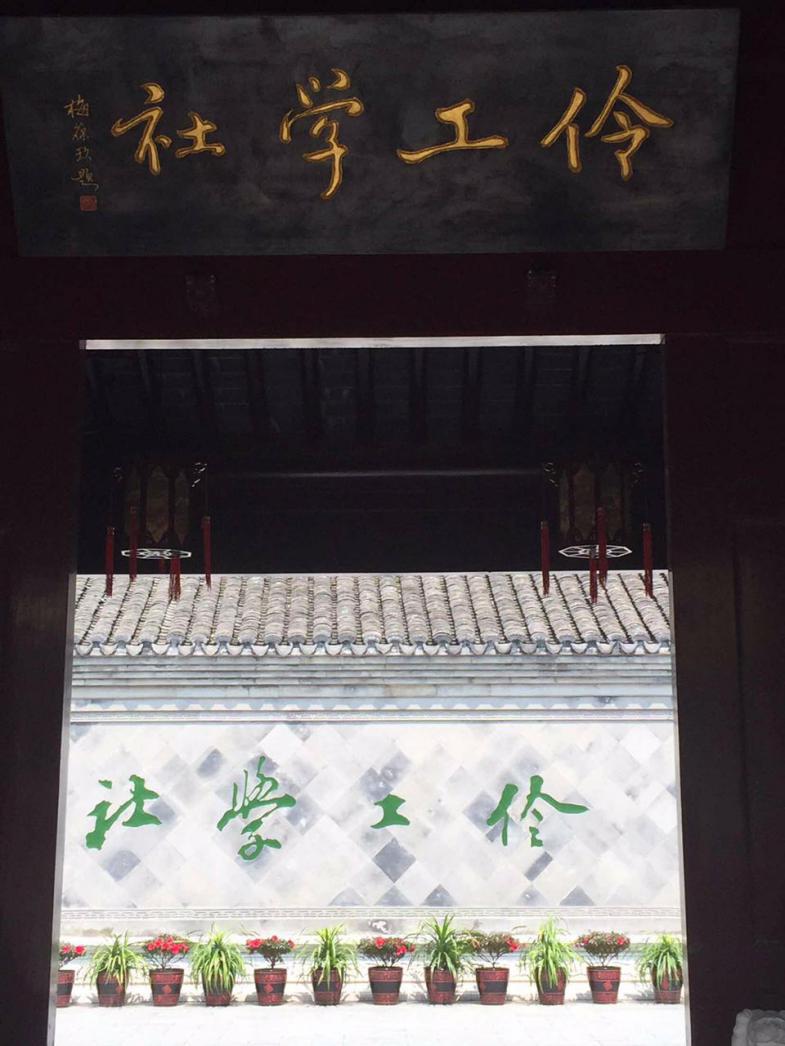 伶工学社
梅葆玖题
伶工學社